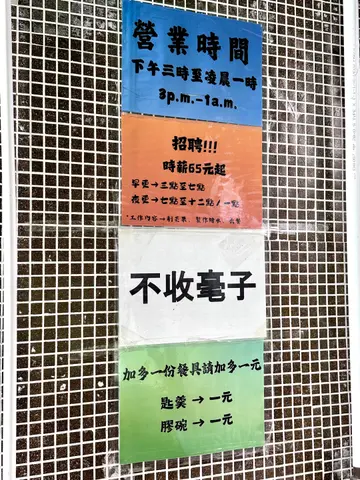 營業時間
下午三時至凌晨一時
3p.m.-1a.m.
招聘!!!
時薪65元起
早更→三點至七點
夜更→七點至十二點/一點
*工作內容→
不收毫子
加多一份餐具請加多一元
匙羹→一元
膠碗→一元